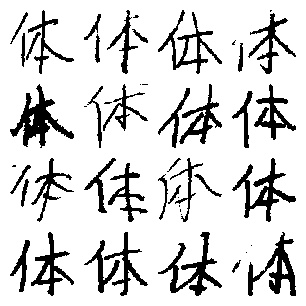 体体体体
体体体体
体体体体
体体体体